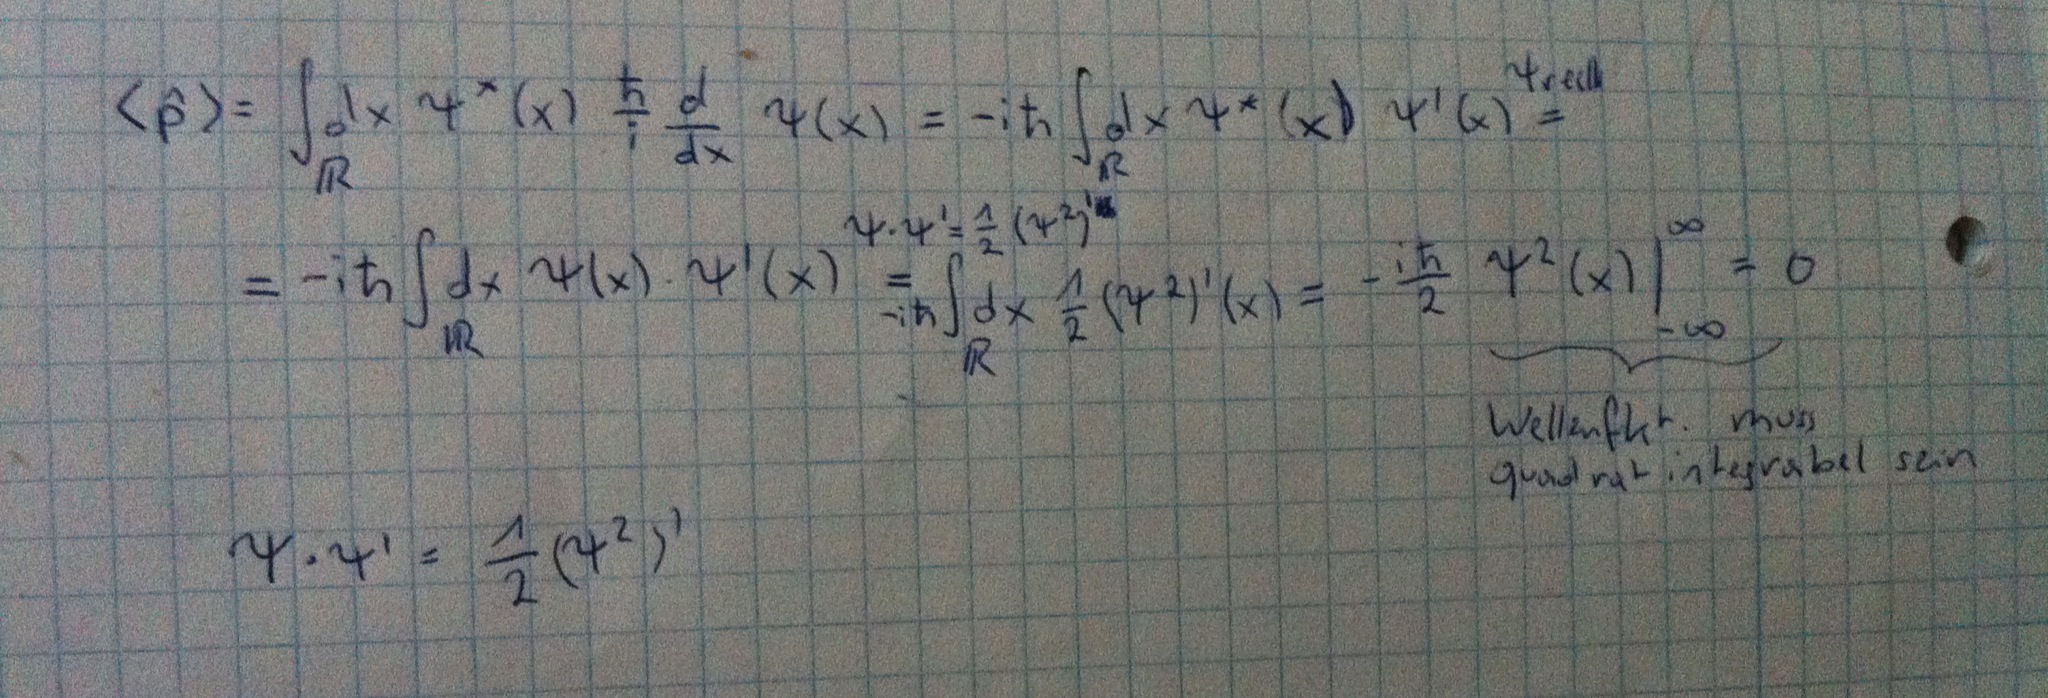 ⟨p̂⟩ = ∫_ℝ dx ψ*(x) ħ/i d/dx ψ(x) = -iħ ∫_ℝ dx ψ*(x) ψ'(x) ψ reell =
= -iħ ∫_ℝ dx ψ(x) · ψ'(x) ψ·ψ' = 1/2 (ψ²)' = -iħ ∫_ℝ dx 1/2 (ψ²)'(x) = - iħ/2 ψ²(x) |_{-∞}^{∞} = 0
Wellenfkt. muss
quadratintegrabel sein
ψ · ψ' = 1/2 (ψ²)'